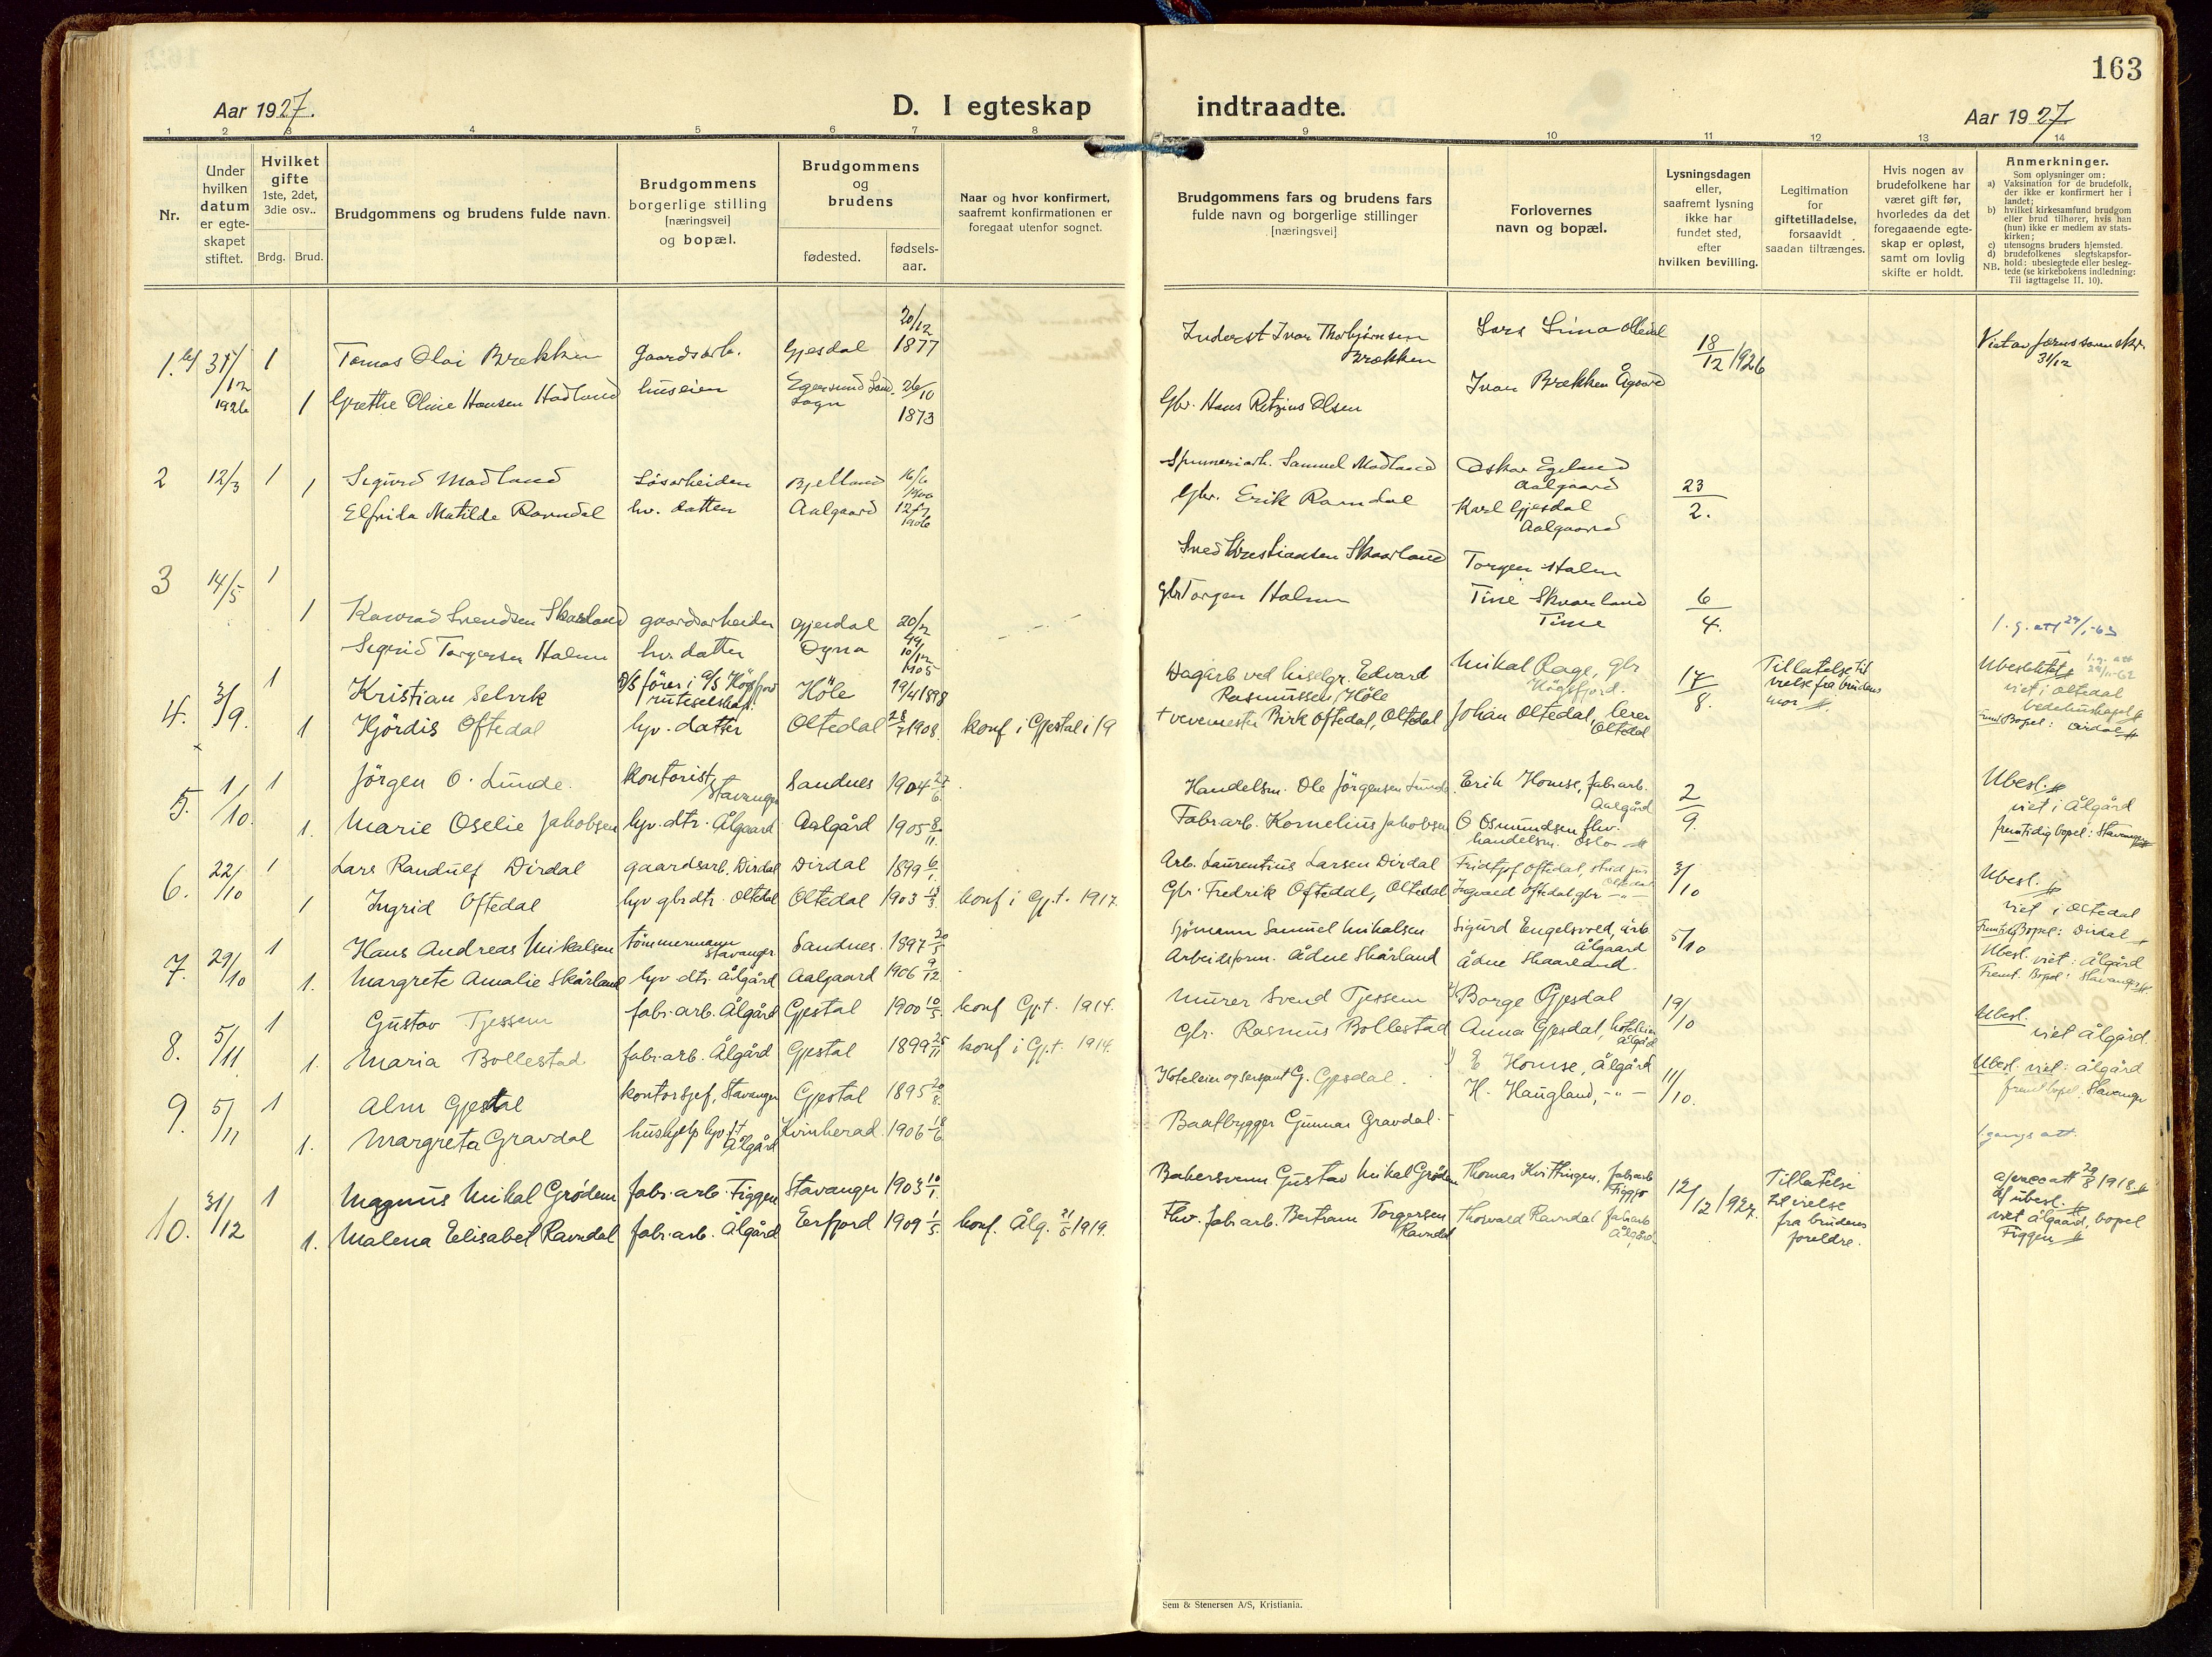 163
Aar 1927.
D. I egteskap
indtraadte.
Aar 1927
1 2 3 4 5 6 7 8
9 10 11 12 13 14
Nr.
Under hvilken datum er egte-skapet stiftet.
Hvilket gifte
1ste, 2det, 3die osv..
Brdg. Brud.
Brudgommens og brudens fulde navn.
Brudgommens borgerlige stilling [næringsvei] og bopæl.
Brudgommens og brudens
fødested.
fødsels-aar.
Naar og hvor konfirmert, saafremt konfirmationen er foregaat utenfor sognet.
Brudgommens fars og brudens fars fulde navn og borgerlige stillinger [næringsvei]
Forlovernes navn og bopæl.
Lysningsdagen eller, saafremt lysning ikke har fundet sted, efter hvilken bevilling.
Legitimation for giftetilladelse, forsaavidt saadan tiltrænges.
Hvis nogen av brudefolkene har været gift før, hvorledes da det foregaaende egte-skap er opløst, samt om lovlig skifte er holdt.
Anmerkninger.
Som oplysninger om:
a) Vaksination for de brudefolk, der ikke er konfirmert her i landet;
b) hvilket kirkesamfund brudgom eller brud tilhører, hvis han (hun) ikke er medlem av stats-kirken;
c) utensogns bruders hjemsted.
d) brudefolkenes slegtskapsfor-hold: ubeslegtede eller besleg-tede (se kirkebokens indledning: Til iagttagelse II. 10).
NB.
1. 31/12 1926 1 Tomas Olai Brekken gaardsarb. Gjesdal 20/12 1877
Inderst Ivar Thorbjørnsen Brekken Lars Lima Oltedal 18/12 1926 31/12
1 Grethe Oline Hansen Hadland huseier Egersund Land Sogn 26/10 1873
Gbr. Hans Retzius Olsen Ivar Brekken Ågaard
2 12/3 1 1 Sigurd Madland Løsarbeider Bjelland 16/6 1900
Spinneriarb. Samuel Madland Oskar Egeland Aalgaard 23/2.
Elfrida Matilde Ravndal hv. datter Aalgaard 1906
Gbr. Erik Ravndal Karl Gjesdal Aalgaard
3 14/5 1
1 Konrad Svendsen Skaarland gaardsarbeider Gjesdal 20/2
Sved Kristiansen Skaarland Torger Halm 6/4.
Sigrid Torgersen Halm hv. datter Ogna 10/12 1905
Gbr Torger Halm Tine Skaarland Time
4. 3/9. 1 Kristian Selvik D/S fører i A/S Høgsfjord ruteselskap. Höle 19/4 1898
Dagarb ved hiselgr. Edvard Rasmussen, Höle Mikal Rage, gbr Högsfjord. 17/8. Tillatelse til vielse fra brudens mor
Ubeslektet viet i Oltedal bedehuskapel
1 Hjördis Oftedal hjv. datter Oltedal 1908. konf i Gjestal i 19
vevemester Birk Oftedal, Oltedal Johan Oltedal, lærer Oltedal
5. 1/10. 1 Jörgen O. Lunde. kontorist, Stavanger Sandnes 1904 27/6.
Handelsm. Ole Jörgensen Lunde Erik Homse, fabr.arb. Aalgård 2/9.
Ubesl. viet i Ålgård fremtidig bopel: Stavanger
1. Marie Oselie Jakobsen hjv. dtr. Ålgaard Aalgård 1905 8/11.
Fabr.arb. Kornelius Jakobsen O Osmundsen fhv. handelsm. Oslo
6. 22/10 1 Lars Randulf Dirdal gaardsarb. Dirdal Dirdal 1899 6/1.
Arb. Laurentius Larsen Dirdal Fridtjof Oftedal, stud jur Oltedal 3/10
Ubesl. viet i Oltedal
1 Ingrid Oftedal hjv gbr dtr. Oltedal Oltedal 1903 13/3. konf i Gj.t. 1917.
Gbr. Fredrik Oftedal, Oltedal Ingvald Oftedal, gbr -"-
Fremtid Bopel: Dirdal
7. 29/10 1 Hans Andreas Mikalsen tömmermann Stavanger Sandnes. 1897 20/5
Sjömann Samuel Mikalsen Sigurd Engelsvold, arb. Ålgaard 5/10
Ubesl. viet: Ålgård
1. Margrete Amalie Skårland hjv dtr. Ålgård Aalgaard 1906 9/12.
Arbeidsform. Ådne Skårland Ådne Skaarland.
Fremt. Bopel: Stavanger
8. 5/11 1 Gustav Tjessem fabr.arb. Ålgård Gjestal 1900 10/5. konf Gj.t. 1914.
Murer Svend Tjessem Borge Gjesdal 19/10
Ubesl. viet Ålgård.
1. Maria Bollestad fabr.arb. Ålgård Gjestal 1899 25/11 konf i Gj.t. 1914.
Gbr. Rasmus Bollestad Anna Gjesdal, hoteleier Ålgård
9. 5/11 1 Alm Gjestal kontorsjef, Stavanger Gjestal 1895 20/8.
Hoteleier og sersjant G. Gjesdal. E Homse, Ålgård 11/10.
H. Haugland, -"-
Ubesl. viet: ålgård fremt bopel. Stavanger
1. Margreta Gravdal hushjelp hjv Ålgård Kvinherad. 1906 18/6.
Baatbygger Gunnar Gravdal.
1. gangs att.
10. 31/12 1 Magnus Mikal Grödem fabr.arb. Figgen Stavanger 1903 10/1.
Bakersvenn Gustav Mikal Grödem Thomas Kvittingen, fabr.arb Figgjo 12/12 1927. Tillatelse til vielse fra brudens foreldre.
ubesl. viet ålgaard, bopel Figgen
1. Malena Elisabet Ravndal fabr.arb. Ålgård Erfjord 1909 1/5. konf. Ålg. 21/5 1919.
Fhv. fabr.arb. Bertram Torgersen Ravndal Thorvald Ravndal fabr.arb Ålgård
Sem & Stenersen A/S, Kristiania.